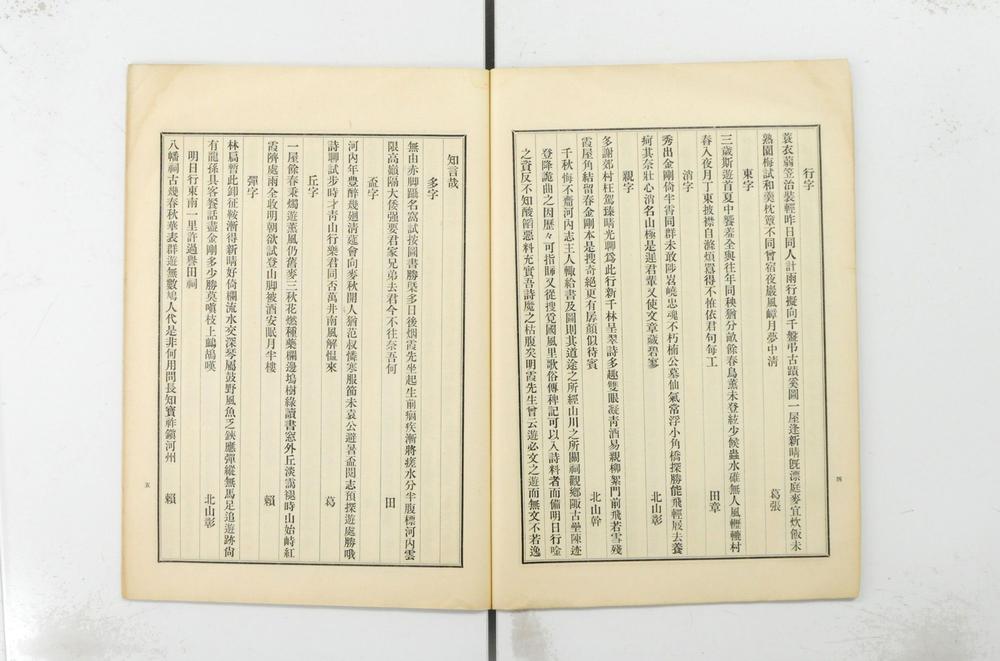 行字
蓑衣蒻笠治裝輕昨日同人計雨行擬向千盤弔古蹟奚圖一屋逢新晴既漂庭麥宜炊飯未
熟園梅試和羹枕簟不同曾宿夜巖風嶂月夢中清
葛張
東字
三歲斯遊首夏中饗羞全與往年同秧猶分畝餘春鳥薰未登絃少候蟲水碓無人風轣轆村
舂入夜月丁東披襟自滌煩囂得不恠依君句每工
田章
消字
秀出金剛倚半霄同群未敢陟岧嶢忠魂不朽楠公墓仙氣常浮小角橋探勝能飛輕屐去養
痾其奈壯心消名山極是逕君輩又使文章藏碧寥
北山彰
親字
多謝郊村枉駕臻晴光聊爲此行新千林呈翠詩多趣雙眼凝靑酒易親柳絮門前飛若雪殘
霞屋角結留春金剛本是搜奇絕更有孱顏似待賓
北山幹
千秋悔不齎河內志主人輙給書及圖則其道途之所經山川之所關祠觀鄉陬古壘陳迹
登降詭曲之因歷々可指眎又從搜覓國風里歌俗傳稗記可以入詩料者而備明日行唫
之資反不知酸餡惡料充實吾詩魔之枯腹矣明霞先生曾云遊必文之遊而無文不若逸
四
知言哉
多字
無由赤脚躡名窩試按圖書勝槩多日後烟霞先坐起生前痼疾漸將瘥水分半腹標河內雲
限高巓隔大倭强要君家兄弟去君今不往奈吾何
田
盃字
河內年豐醉幾廻清蓙會向麥秋開人猶范叔憐寒服節未袁公避暑盃閱志預探遊處勝哦
詩聊試步時才靑山行樂君同否萬井南風解慍來
葛
丘字
一屋餘春秉燭遊薰風仍舊麥三秋花燃種藥欄邊塢樹綠讀書窓外丘淡靄褪時山始峙紅
霞隮處雨全收明朝欲試登山脚被酒安眠月半樓
賴
彈字
林扃暫此卸征鞍漸得新晴好倚欄流水交深琴屬鼓野風魚乏鋏應彈縱無馬足追遊跡尙
有龍孫具客餐話盡金剛多少勝莫嗔枝上鷓鴣嘆
北山彰
明日行東南一里許過譽田祠
八幡祠古幾春秋華表群遊無數鳩人代是非何用問長知寶祚鎭河州
賴
五